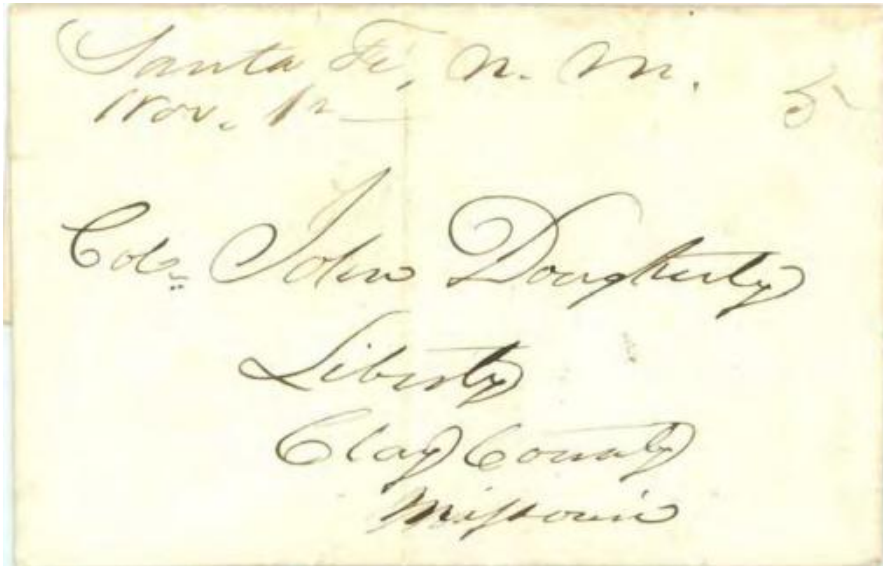 Santa Fé, N. M.
Nov. 12
5
Col. John Dougherty
Liberty
Clay County
Missouri